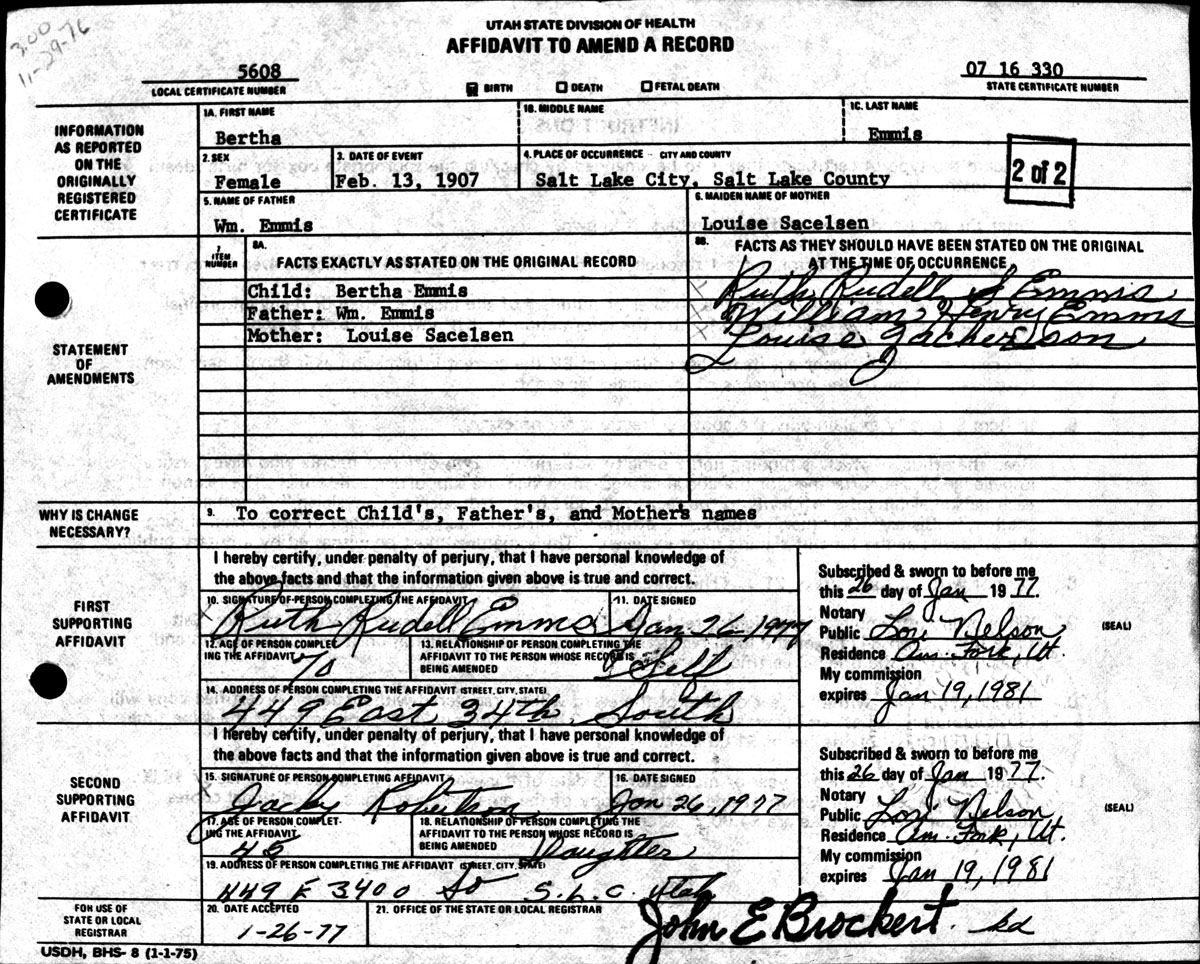 3.00
11-29-76
UTAH STATE DIVISION OF HEALTH
AFFIDAVIT TO AMEND A RECORD
5608
LOCAL CERTIFICATE NUMBER
BIRTH DEATH FETAL DEATH
07 16 330
STATE CERTIFICATE NUMBER
INFORMATION AS REPORTED ON THE ORIGINALLY REGISTERED CERTIFICATE
1A. FIRST NAME
Bertha
1B. MIDDLE NAME
1C. LAST NAME
Emmis
2. SEX
Female
3. DATE OF EVENT
Feb. 13, 1907
4. PLACE OF OCCURRENCE - CITY AND COUNTY
Salt Lake City, Salt Lake County
2 of 2
5. NAME OF FATHER
Wm. Emmis
6. MAIDEN NAME OF MOTHER
Louise Sacelsen
STATEMENT OF AMENDMENTS
7. ITEM NUMBER
8A. FACTS EXACTLY AS STATED ON THE ORIGINAL RECORD
8B. FACTS AS THEY SHOULD HAVE BEEN STATED ON THE ORIGINAL AT THE TIME OF OCCURRENCE.
Child: Bertha Emmis
Ruth Rudell Emmis
Father: Wm. Emmis
William Henry Emms
Mother: Louise Sacelsen
Louise
WHY IS CHANGE NECESSARY?
9. To correct Child's, Father's, and Mother's names
FIRST SUPPORTING AFFIDAVIT
I hereby certify, under penalty of perjury, that I have personal knowledge of
the above facts and that the information given above is true and correct.
10. SIGNATURE OF PERSON COMPLETING THE AFFIDAVIT
Ruth Rudell Emms
11. DATE SIGNED
Jan 26 1977
12. AGE OF PERSON COMPLETING THE AFFIDAVIT
70
13. RELATIONSHIP OF PERSON COMPLETING THE AFFIDAVIT TO THE PERSON WHOSE RECORD IS BEING AMENDED
Self
14. ADDRESS OF PERSON COMPLETING THE AFFIDAVIT (STREET, CITY, STATE)
449 East 34th South
Subscribed & sworn to before me
this 26 day of Jan 1977.
Notary Public Lori Nelson
(SEAL)
Residence Am. Fork, Ut.
My commission
expires Jan 19, 1981
SECOND SUPPORTING AFFIDAVIT
I hereby certify, under penalty of perjury, that I have personal knowledge of
the above facts and that the information given above is true and correct.
15. SIGNATURE OF PERSON COMPLETING AFFIDAVIT
Jacky Robertson
16. DATE SIGNED
Jan 26, 1977
17. AGE OF PERSON COMPLETING THE AFFIDAVIT
18. RELATIONSHIP OF PERSON COMPLETING THE AFFIDAVIT TO THE PERSON WHOSE RECORD IS BEING AMENDED
Daughter
19. ADDRESS OF PERSON COMPLETING THE AFFIDAVIT (STREET, CITY, STATE)
449 E 3400 So S.L.C. Utah
Subscribed & sworn to before me
this 26 day of Jan 1977.
Notary Public Lori Nelson
(SEAL)
Residence Am. Fork, Ut.
My commission
expires Jan 19, 1981
FOR USE OF STATE OR LOCAL REGISTRAR
20. DATE ACCEPTED
1-26-77
21. OFFICE OF THE STATE OR LOCAL REGISTRAR
John E Brockert. kd
USDH, BHS- 8 (1-1-75)